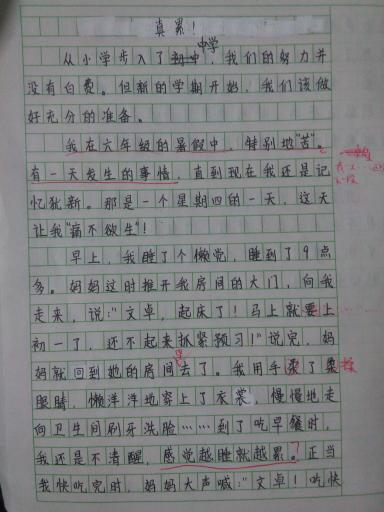 真累！
中学
从小学步入了初中，我们的努力并
没有白费。但新的学期开始，我们该做
好充分的准备。
我在六年级的暑假中，特别地"苦"。
有一天发生的事情，直到现在我还是记
忆犹新。那是一个星期四的一天，这天
让我"痛不欲生"！
早上，我睡了个懒觉，睡到了9点
多。妈妈这时推开我房间的大门，向我
走来，说："文卓，起床了！马上就要上
初一了，还不起来抓紧预习！"说完，妈
妈就回到她的房间去了。我用手柔了柔 揉
眼睛，懒洋洋地穿上了衣裳，慢慢地走
向卫生间刷牙洗脸……到了吃早餐时，
我还是不清醒，感觉越睡就越累。正当
我快吃完时，妈妈大声喊："文卓！吃快